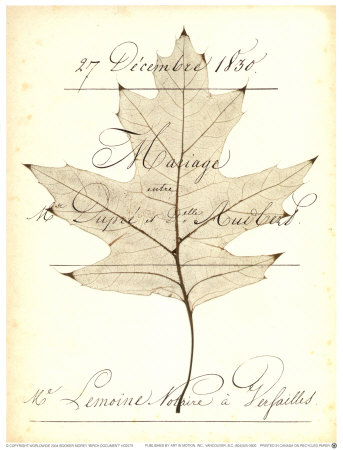 27 Décembre 1830.
Mariage
entre
Mr. Dupré et Delle. Audbert.
Me. Lemoine Notaire à Versailles
© COPYRIGHT WORLDWIDE 2004 BOOKER MOREY "MARCH DOCUMENT" PUBLISHED BY ART IN MOTION, INC., VANCOUVER, B.C. PRINTED IN CANADA ON RECYCLED PAPER